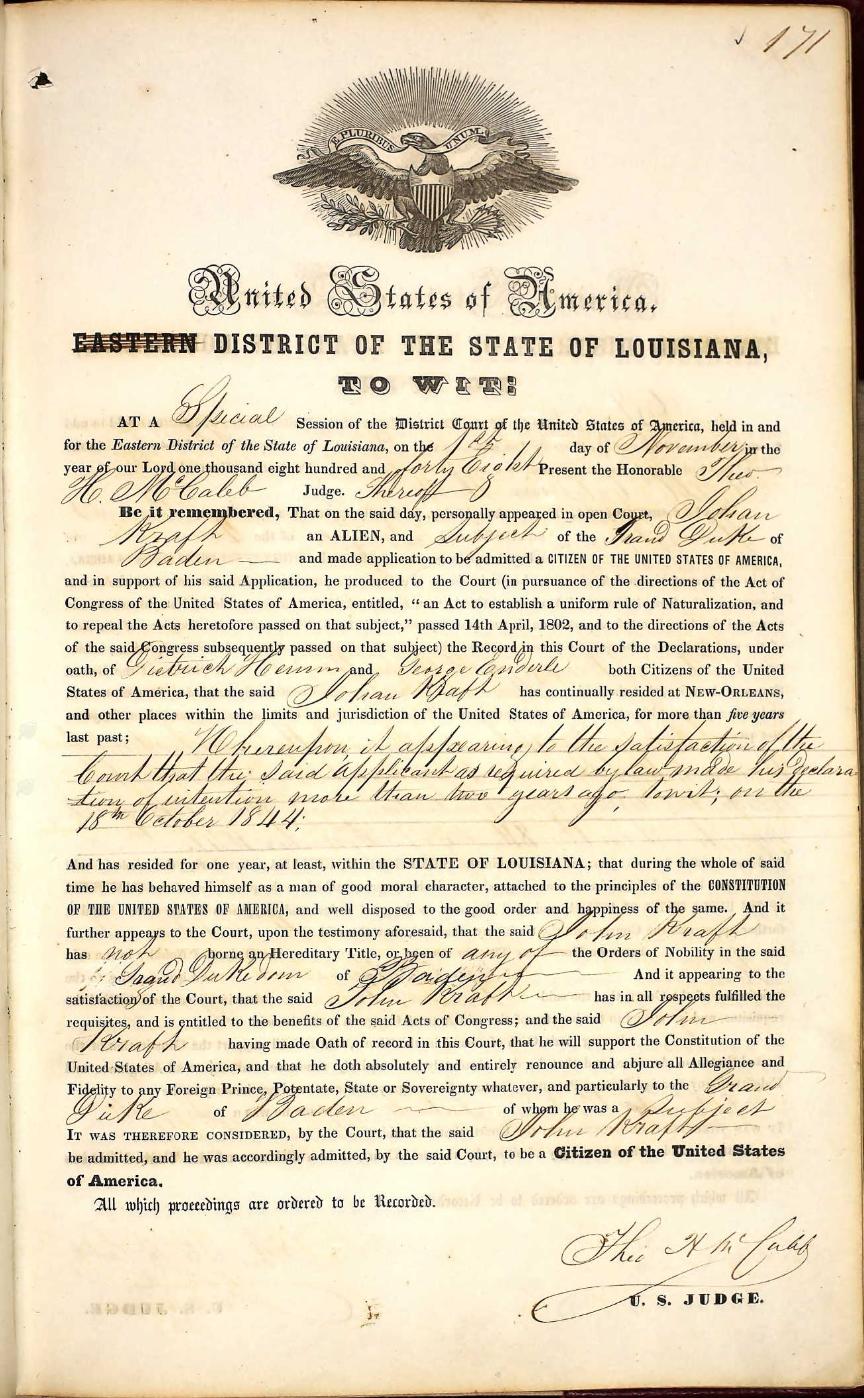 171
E PLURIBUS UNUM
United States of America.
EASTERN DISTRICT OF THE STATE OF LOUISIANA,
TO WIT:
AT A Special Session of the District Court of the United States of America, held in and
for the Eastern District of the State of Louisiana, on the 1st day of November in the
year of our Lord one thousand eight hundred and forty Eight Present the Honorable Theo.
H. McCaleb Judge. Thereof
Be it remembered, That on the said day, personally appeared in open Court, Johan
Kraft an ALIEN, and Subject of the Grand Duke of
Baden and made application to be admitted a CITIZEN OF THE UNITED STATES OF AMERICA,
and in support of his said Application, he produced to the Court (in pursuance of the directions of the Act of
Congress of the United States of America, entitled, "an Act to establish a uniform rule of Naturalization, and
to repeal the Acts heretofore passed on that subject," passed 14th April, 1802, and to the directions of the Acts
of the said Congress subsequently passed on that subject) the Record in this Court of the Declarations, under
oath, of Dietrich and George Enderle both Citizens of the United
States of America, that the said Johan Kraft has continually resided at NEW-ORLEANS,
and other places within the limits and jurisdiction of the United States of America, for more than five years
last past; Whereupon it appearing to the satisfaction of the
Court that the said applicant as required by law made his declara
tion of intention more than two years ago, towit; on the
18th October 1844;
And has resided for one year, at least, within the STATE OF LOUISIANA; that during the whole of said
time he has behaved himself as a man of good moral character, attached to the principles of the CONSTITUTION
OF THE UNITED STATES OF AMERICA, and well disposed to the good order and happiness of the same. And it
further appears to the Court, upon the testimony aforesaid, that the said John Kraft
has not borne an Hereditary Title, or been of any of the Orders of Nobility in the said
Grand Dukedom of Baden And it appearing to the
satisfaction of the Court, that the said John Kraft has in all respects fulfilled the
requisites, and is entitled to the benefits of the said Acts of Congress; and the said John
Kraft having made Oath of record in this Court, that he will support the Constitution of the
United States of America, and that he doth absolutely and entirely renounce and abjure all Allegiance and
Fidelity to any Foreign Prince, Potentate, State or Sovereignty whatever, and particularly to the Grand
Duke of Baden of whom he was a subject
IT WAS THEREFORE CONSIDERED, by the Court, that the said John Kraft
be admitted, and he was accordingly admitted, by the said Court, to be a Citizen of the United States
of America.
All which proceedings are ordered to be Recorded.
Theo H McCaleb
U. S. JUDGE.